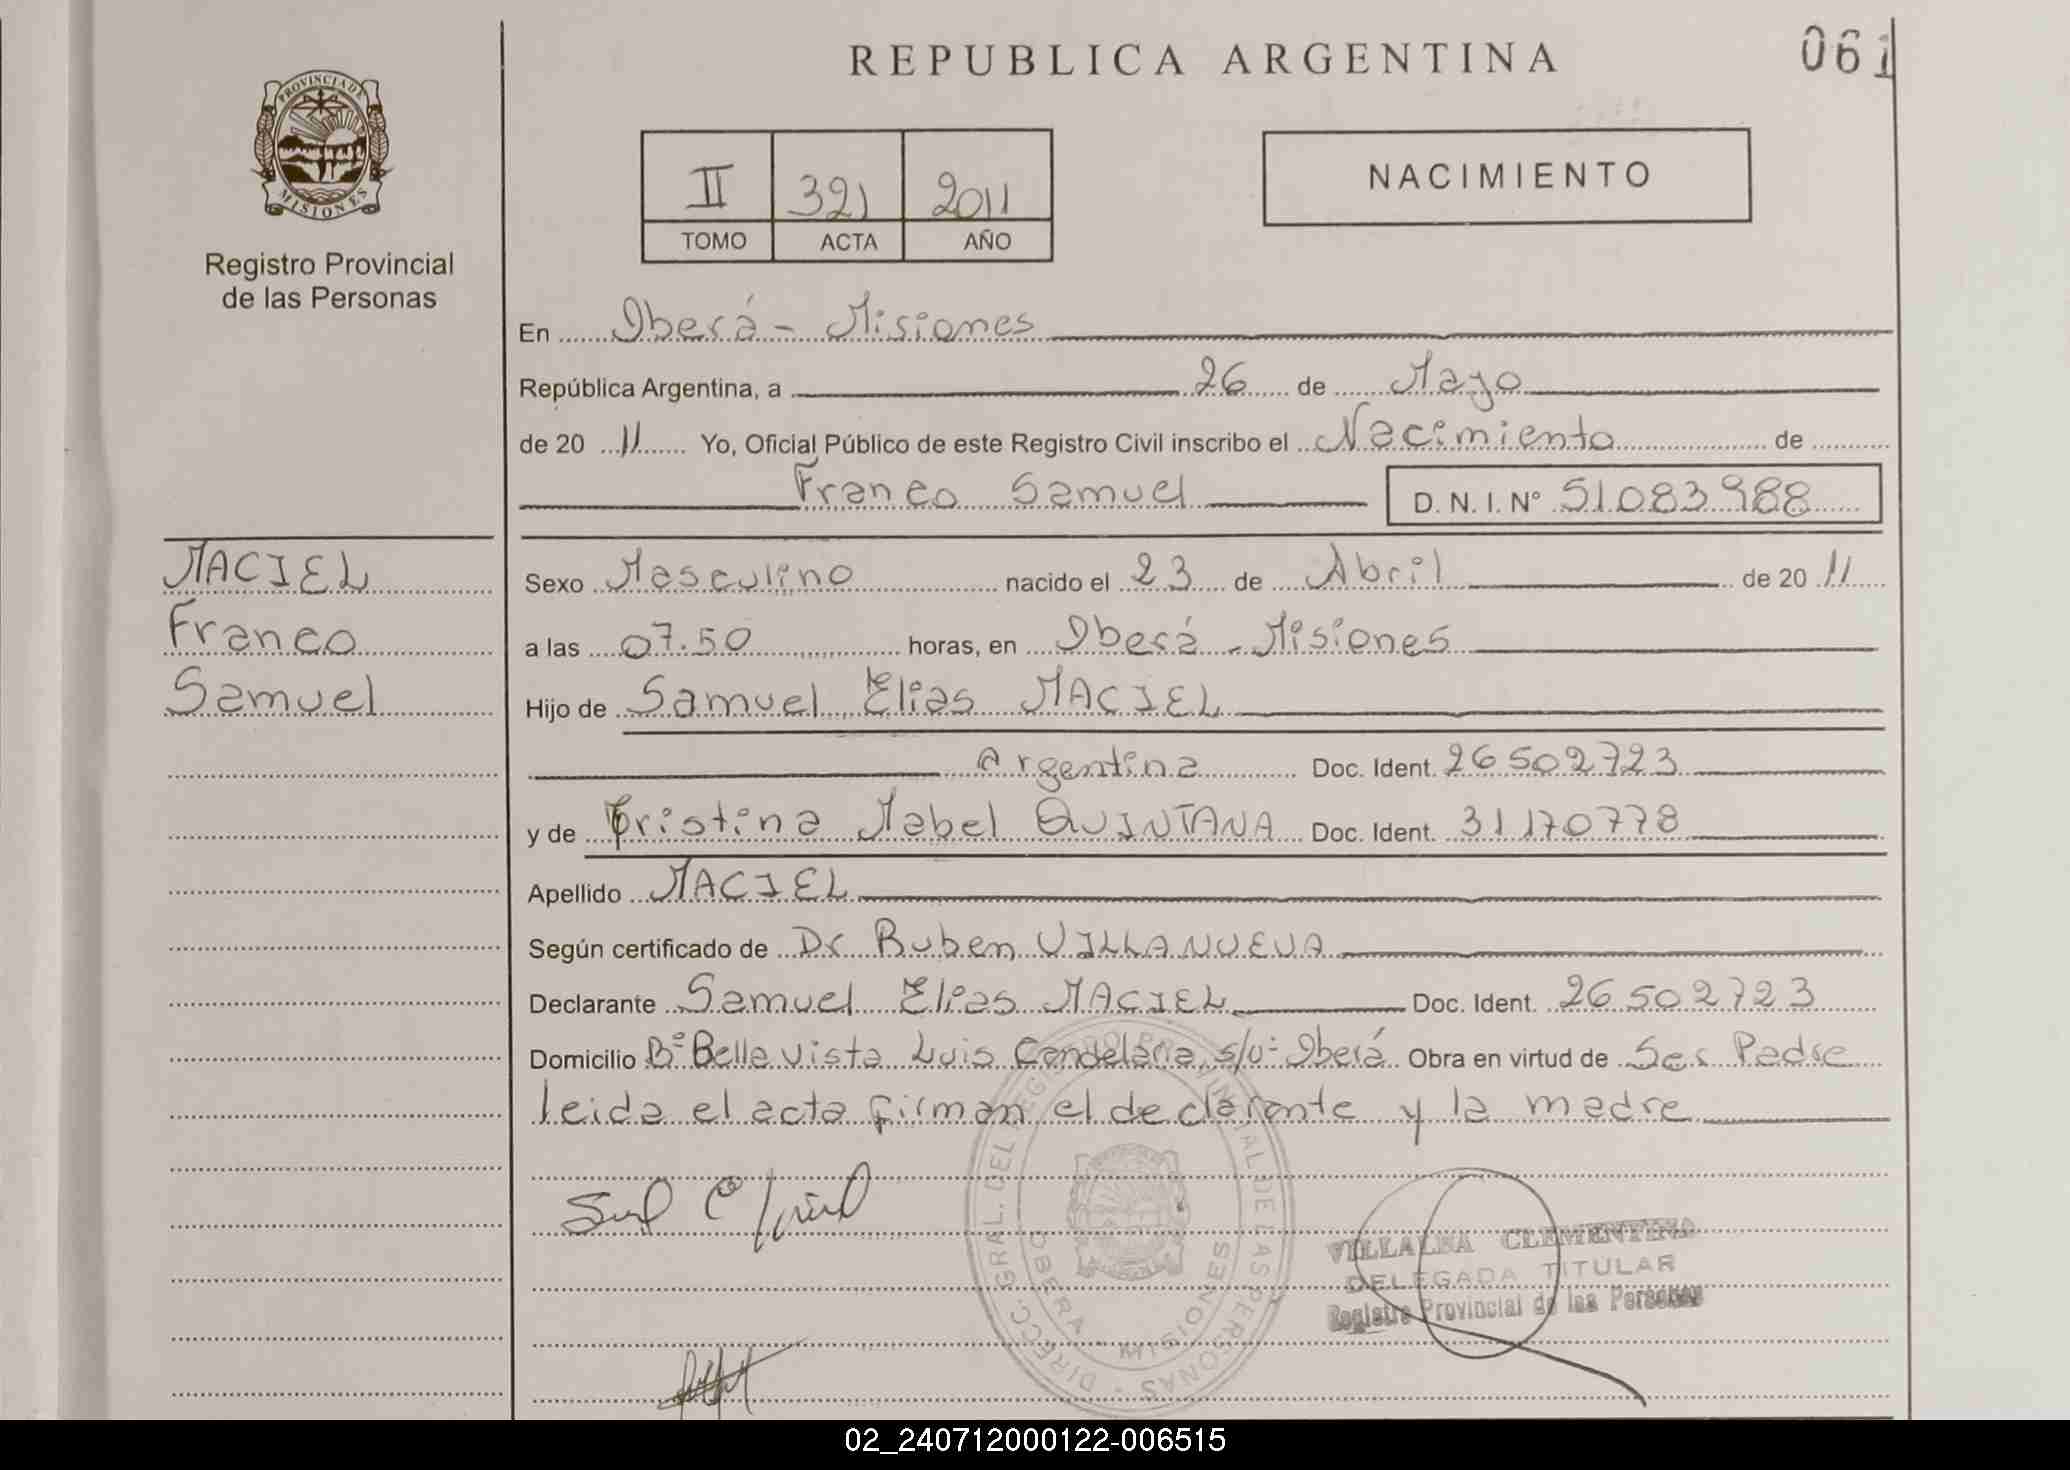 REPUBLICA ARGENTINA
061
PROVINCIA DE
MISIONES
Registro Provincial
de las Personas
II 321 2011
TOMO ACTA AÑO
NACIMIENTO
En Oberá - Misiones
República Argentina, a 26 de Mayo
de 20 11 Yo, Oficial Público de este Registro Civil inscribo el Nacimiento de
Franco Samuel D. N. I. Nº 51083988
MACIEL
Franco
Samuel
Sexo Masculino nacido el 23 de Abril de 20 11
a las 07.50 horas, en Oberá - Misiones
Hijo de Samuel Elias MACIEL
Argentina Doc. Ident. 26502723
y de Cristina Mabel QUINTANA Doc. Ident. 31170778
Apellido MACIEL
Según certificado de Dr Ruben VILLANUEVA
Declarante Samuel Elias MACIEL Doc. Ident. 26502723
Domicilio Bº Bella Vista Luis Candelaria s/nº Oberá Obra en virtud de Ser Padre
leida el acta firman el declarante y la madre
DIRECC. GRAL. DEL REGISTRO PROVINCIAL DE LAS PERSONAS
OBERA - MISIONES
VILLALBA CLEMENTINA
DELEGADA TITULAR
Registro Provincial de las Personas
02_240712000122-006515